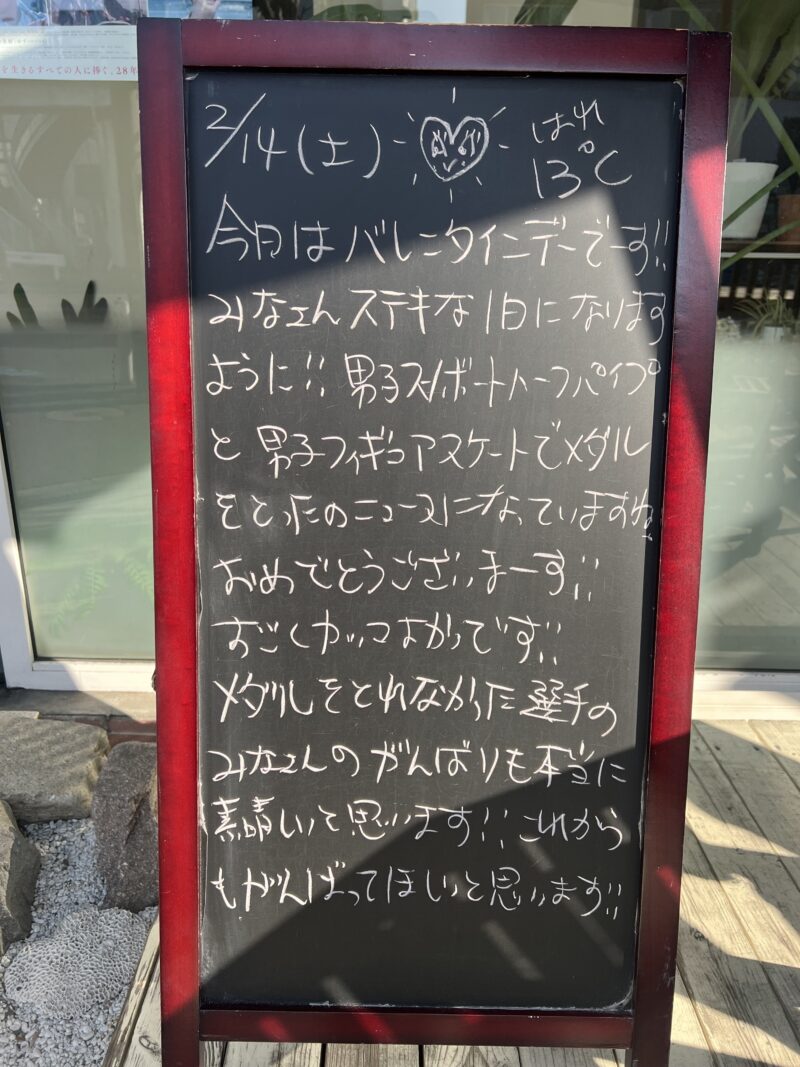 を生きるすべての人に捧ぐ、28年
2/14(土) はれ 13℃
今日はバレンタインデーでーす!!
みなさんステキな1日になります
ように!! 男子スノボートハーフパイプ
と男子フィギュアスケートでメダル
をとったのニュースになっていますね
おめでとうございまーす!!
すごくカッコよかっです!!
メダルをとれなかった選手の
みなさんのがんばりも本当に
素晴しいと思います!! これから
もがんばってほしいと思います!!